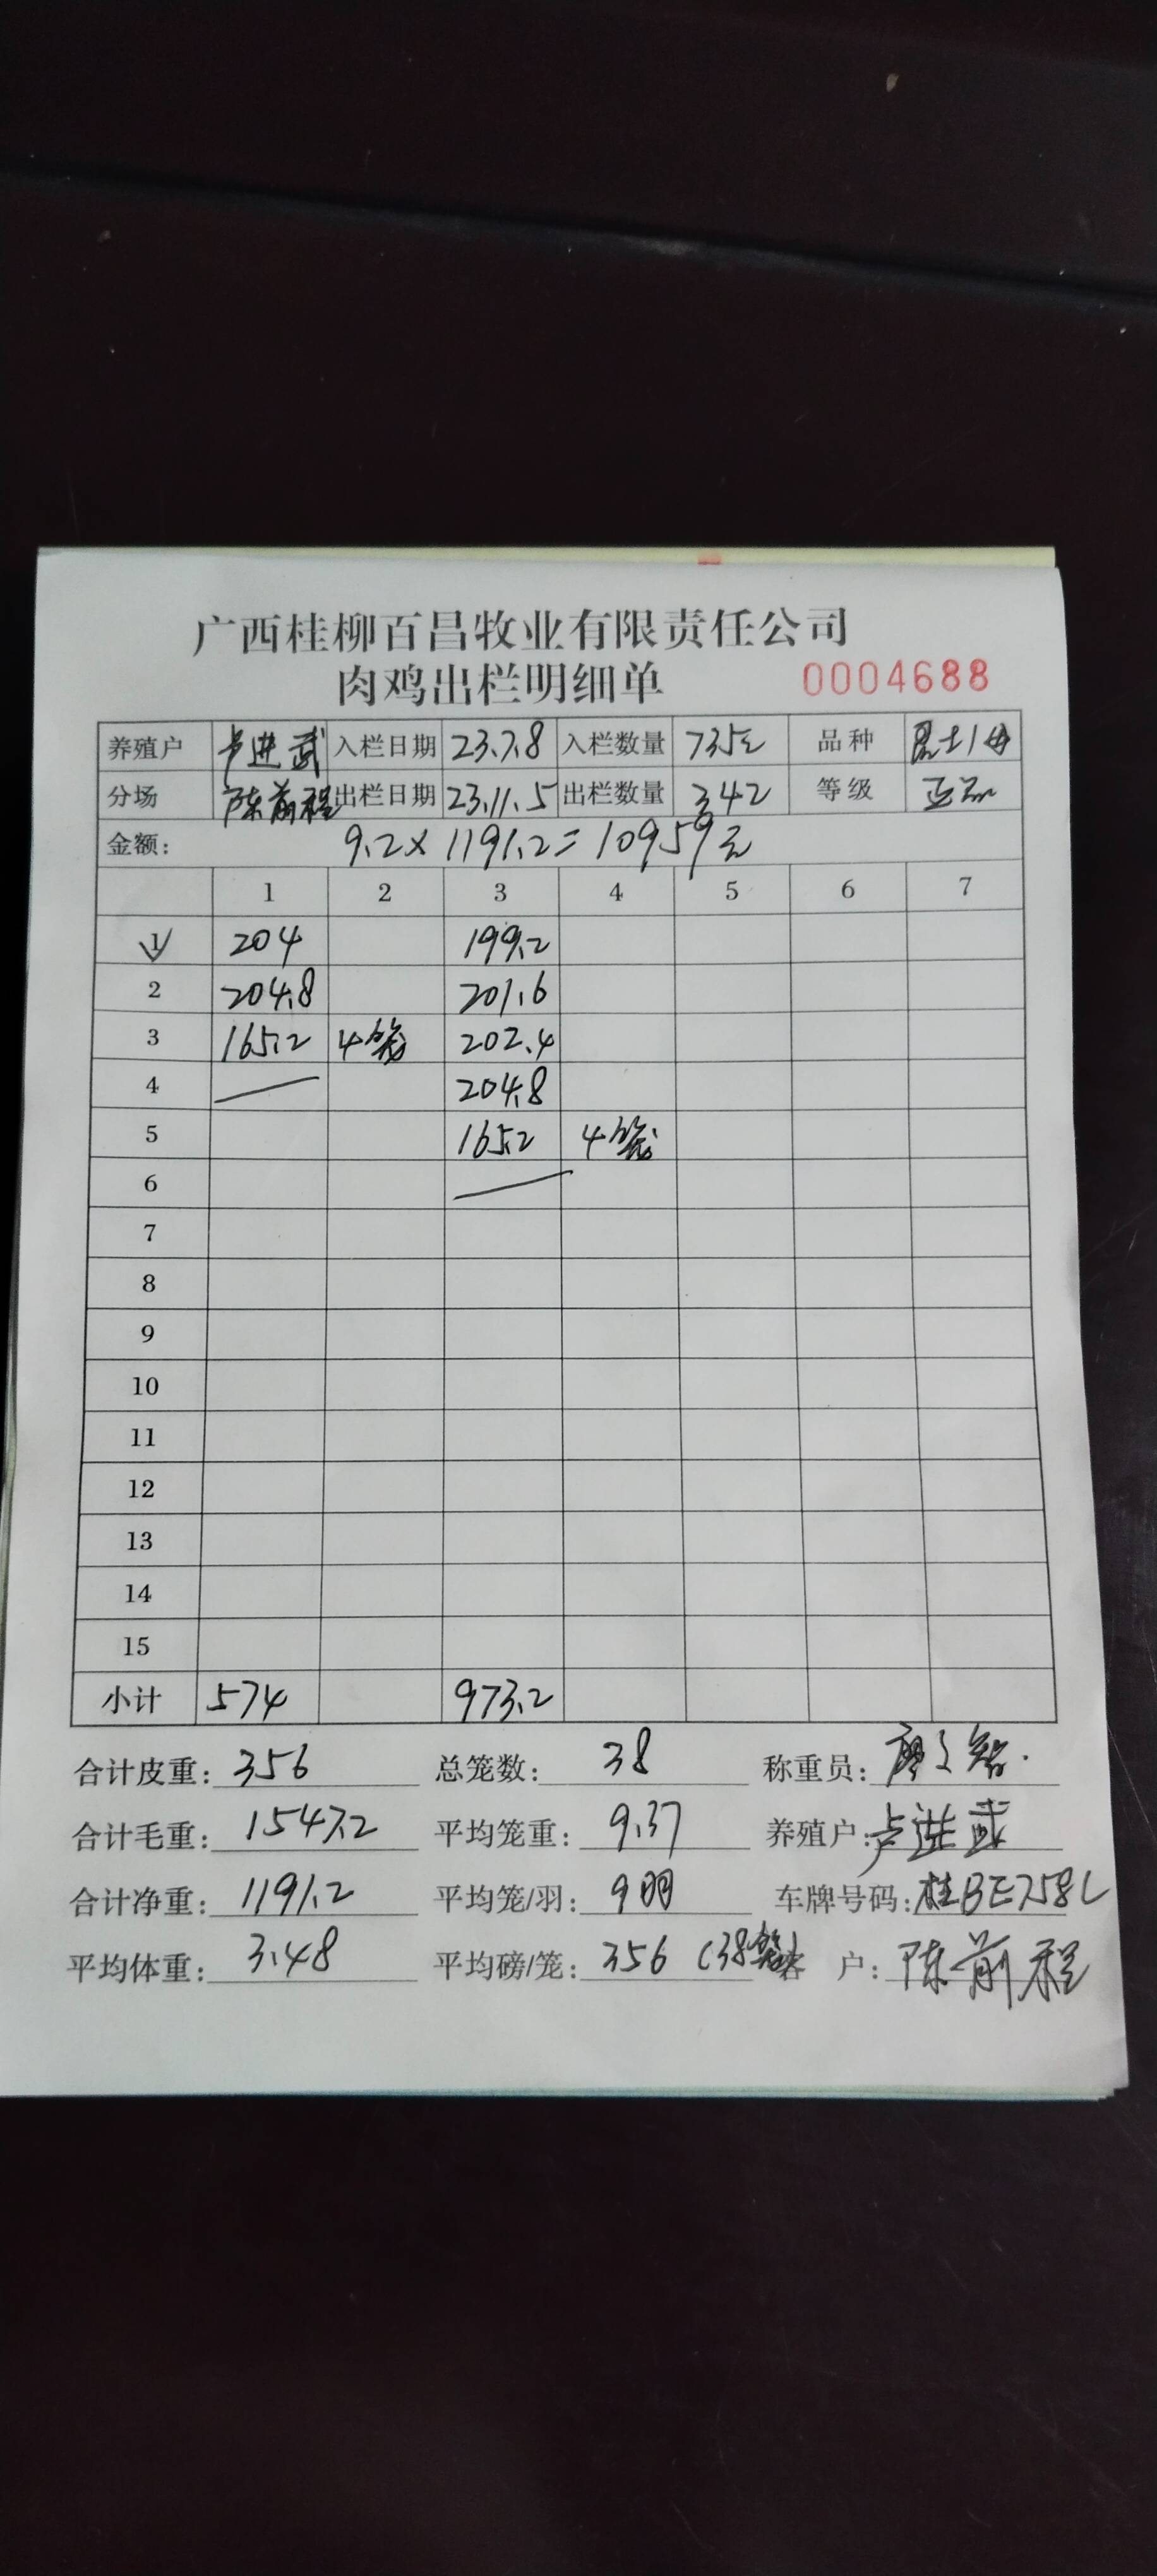 广西桂柳百昌牧业有限责任公司
肉鸡出栏明细单 0004688
养殖户 卢进武 入栏日期 23.7.8 入栏数量 735 品种
分场 陈前程 出栏日期 23.11.5 出栏数量 342 等级
金额: 9.2×1191.2=10959元
1 2 3 4 5 6 7
1 204 199.2
2 204.8 201.6
3 165.2 4笼 202.4
4 204.8
5 165.2 4笼
6
7
8
9
10
11
12
13
14
15
小计 574 973.2
合计皮重: 356 总笼数: 38 称重员:
合计毛重: 1547.2 平均笼重: 9.37 养殖户: 卢进武
合计净重: 1191.2 平均笼/羽: 9羽 车牌号码: 桂BE758L
平均体重: 3.48 平均磅/笼: 356 (38笼 客户: 陈前程